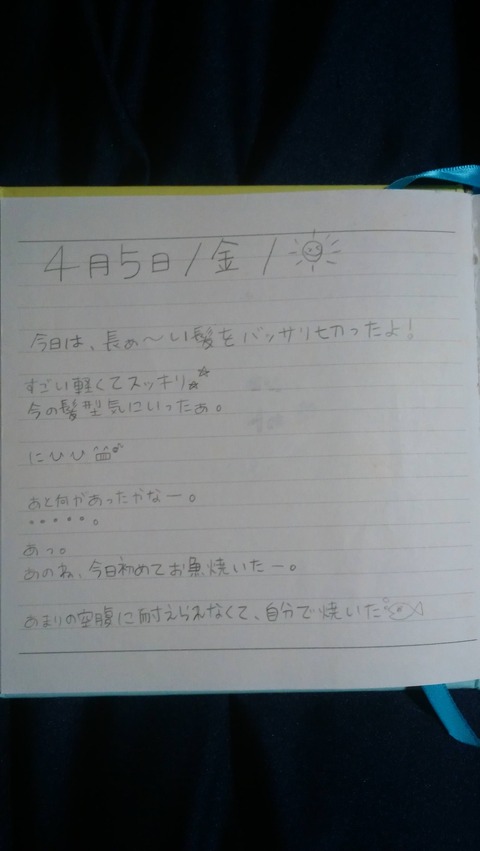 4月5日/金/
今日は、長め〜い髪をバッサリ切ったよ!
すごい軽くてスッキリ☆
今の髪型気にいったぁ。
にひひ
あと何があったかなー。
・・・・・。
あっ。
あのね、今日初めてお魚焼いたー。
あまりの空腹に耐えられなくて、自分で焼いた